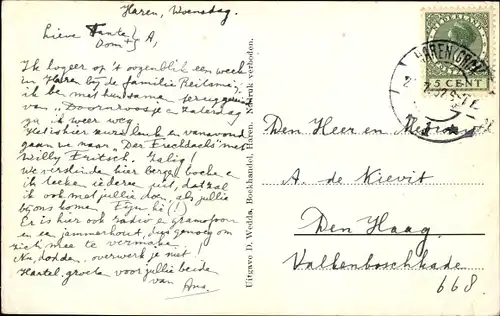 Haren, Woensdag.
Lieve Tante } A,
Dom
Ik logeer op 't oogenblik een week
in Haren bij de familie Reitsma;
ik ben met hun samen teruggegaan
van "Doornroosje" Zaterdag
ga ik weer weg.
Het is hier leuk en vanavond
gaan we naar "Der" met
Willy Fritsch. Zalig!
We verslinden hier bergen boeken
ik teeken iedereen uit, dat zal
ik ook met jullie doen, als jullie
bij ons komt. Fijn hè, (!)
Er is hier ook radio en gramofoon
en een jammerhout, dus genoeg om
zich mee te vermaken.
Nu, dodden, overwerk je niet
Hartel. groeten voor jullie beide
van Ans.
Uitgave D. Wedda, Boekhandel, Haren. Nadruk verboden.
NEDERLAND
5 CENT
HAREN (GRON)
Den Heer en Mevrouw
A. de Kievit
Den Haag.
Valkenboschkade
668